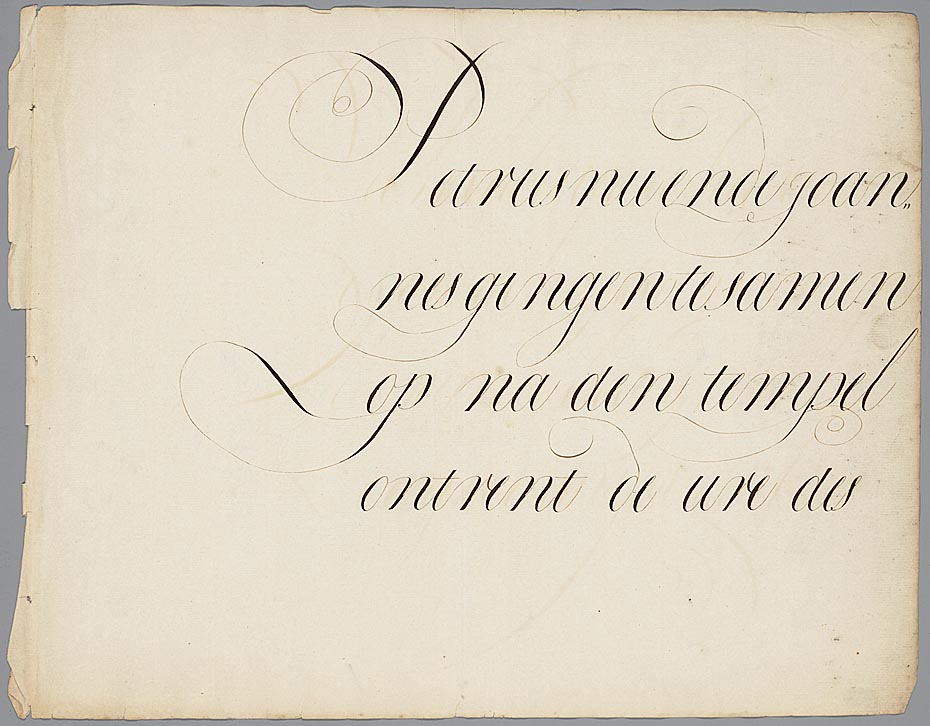 Petrus nu ende joan„
nes gingen te samen
op na den tempel
ontrent de ure des